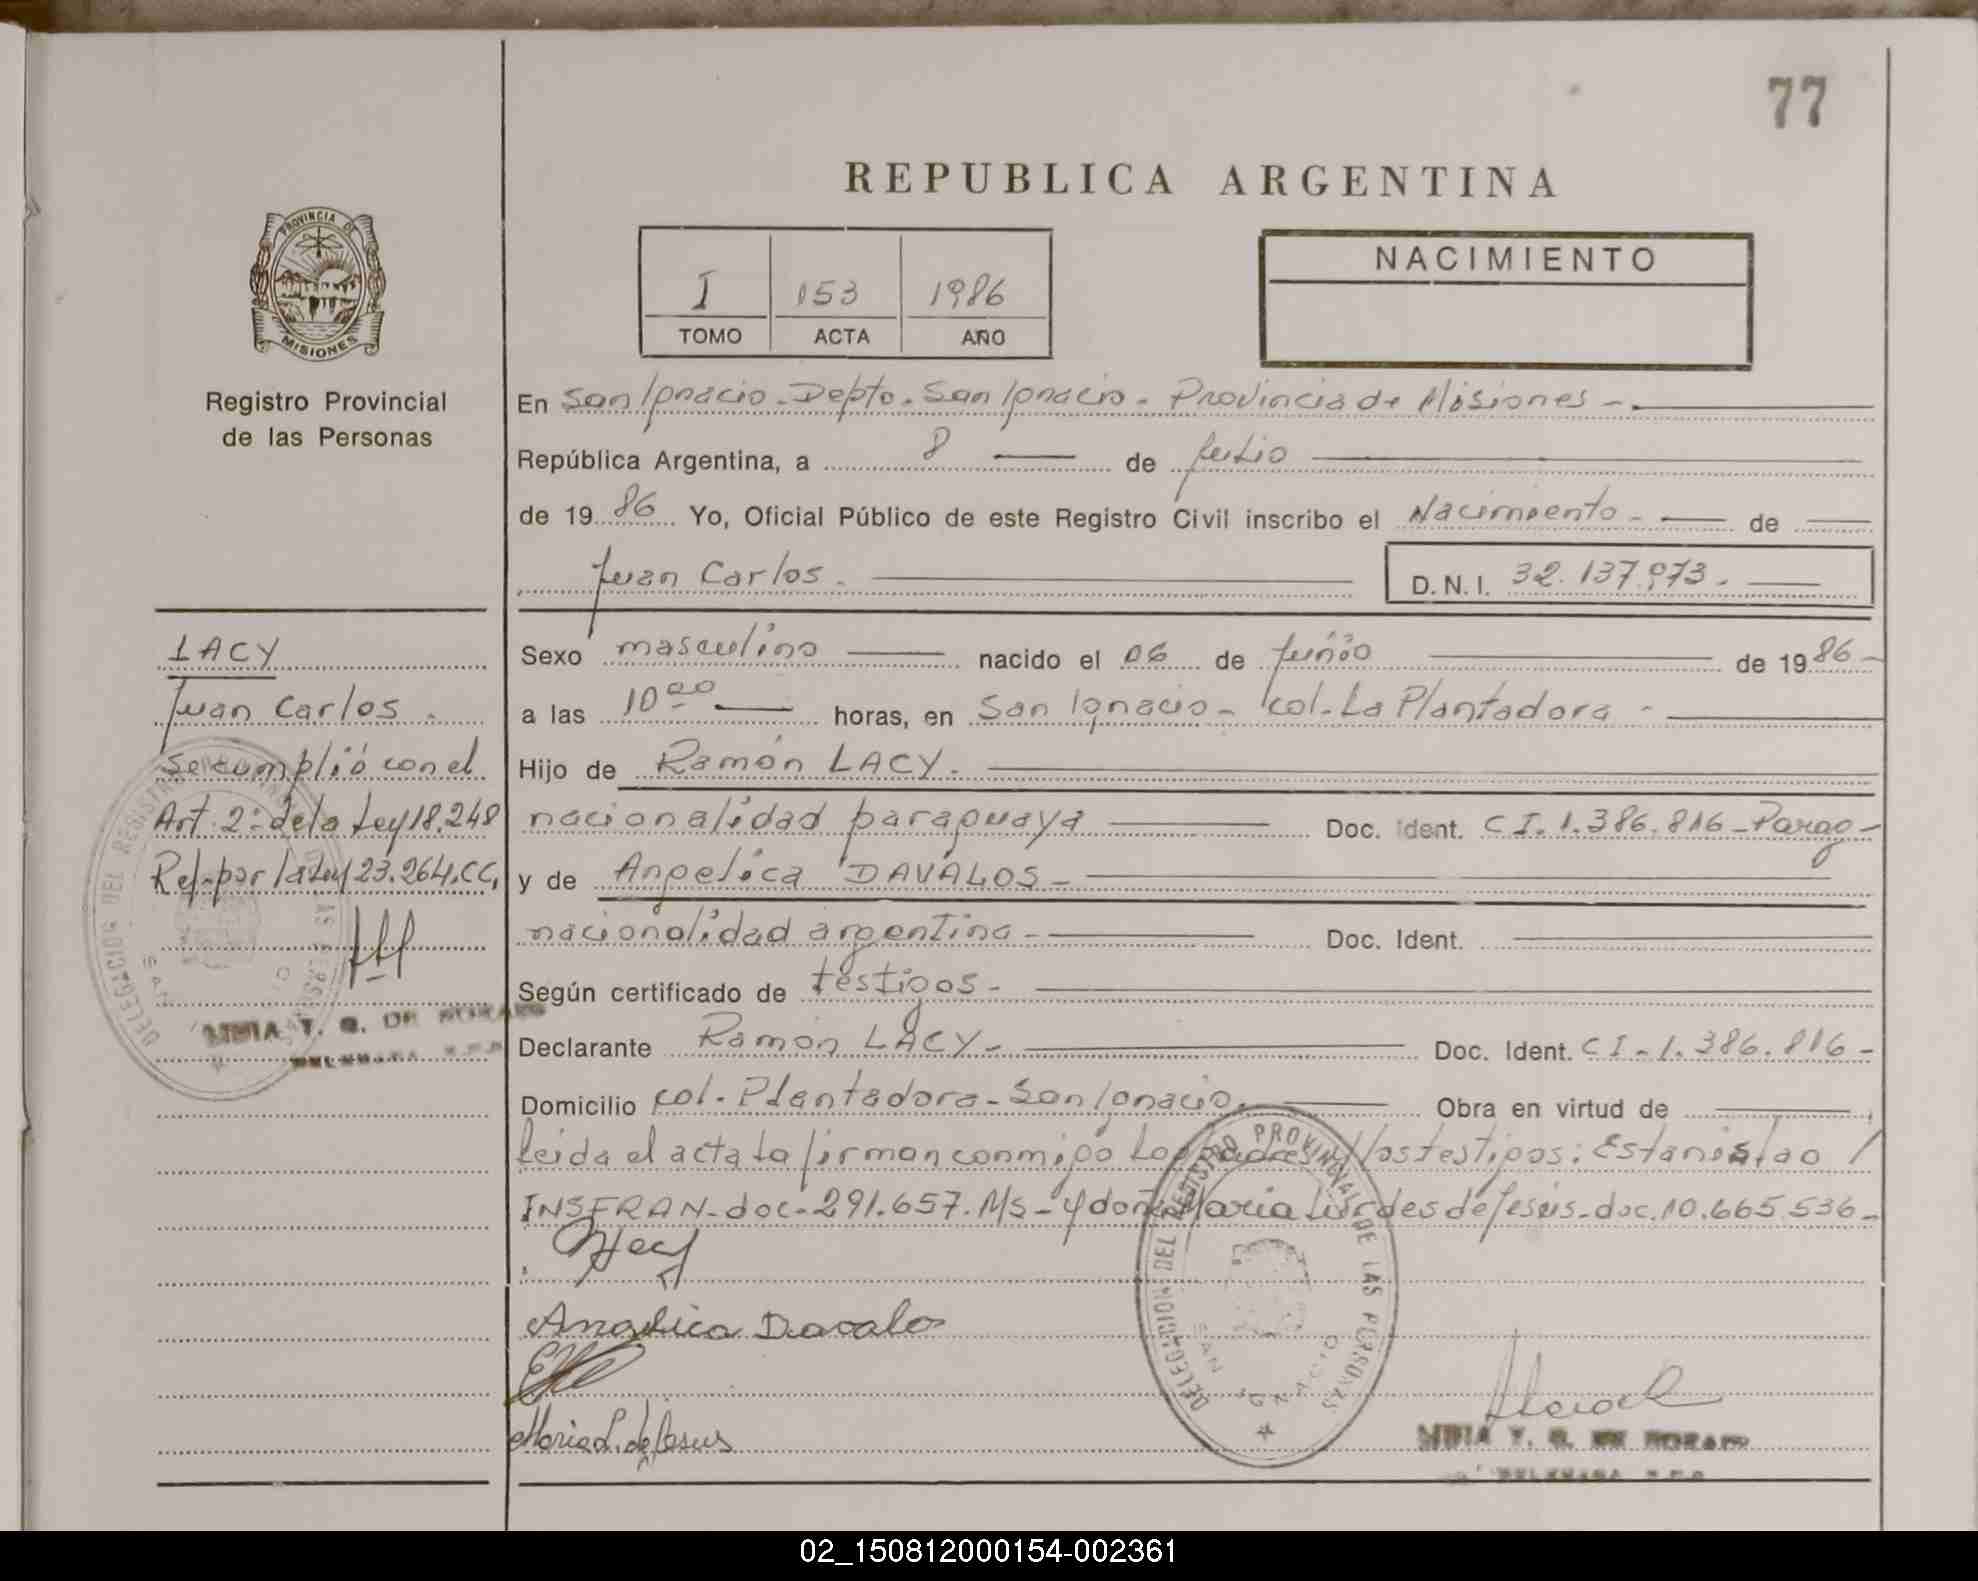 77
REPUBLICA ARGENTINA
PROVINCIA DE
MISIONES
Registro Provincial
de las Personas
I 153 1986
TOMO ACTA AÑO
NACIMIENTO
En San Ignacio - Depto. San Ignacio - Provincia de Misiones -
República Argentina, a 8 de Julio
de 19 86 Yo, Oficial Público de este Registro Civil inscribo el Nacimiento - de
Juan Carlos. D.N.I. 32.137.973.
LACY
Juan Carlos.
se cumplió con el
Art. 2º de la Ley 18.248
Ref. por la Ley 23.264.CC.
DELEGACION DEL REGISTRO
Sexo masculino nacido el 06 de junio de 19 86-
a las 10 00 horas, en San Ignacio - col. La Plantadora -
Hijo de Ramón LACY.
nacionalidad paraguaya Doc. Ident. C I. 1.386.816 - Parag -
y de Angelica DAVALOS -
nacionalidad argentina - Doc. Ident.
Según certificado de testigos -
Declarante Ramón LACY - Doc. Ident. C I - 1.386.816 -
Domicilio col. Plantadora - San Ignacio. Obra en virtud de
leida el acta la firman conmigo Los padres y los testigos: Estanislao /
INSFRAN - doc - 291.657. Ms - y doña Maria Lurdes de Jesús - doc. 10.665.536 -
Angelica Davalo
Maria L. de Jesus
DELEGACION DEL REGISTRO PROVINCIAL DE LAS PERSONAS
SAN IGNACIO
02_150812000154-002361